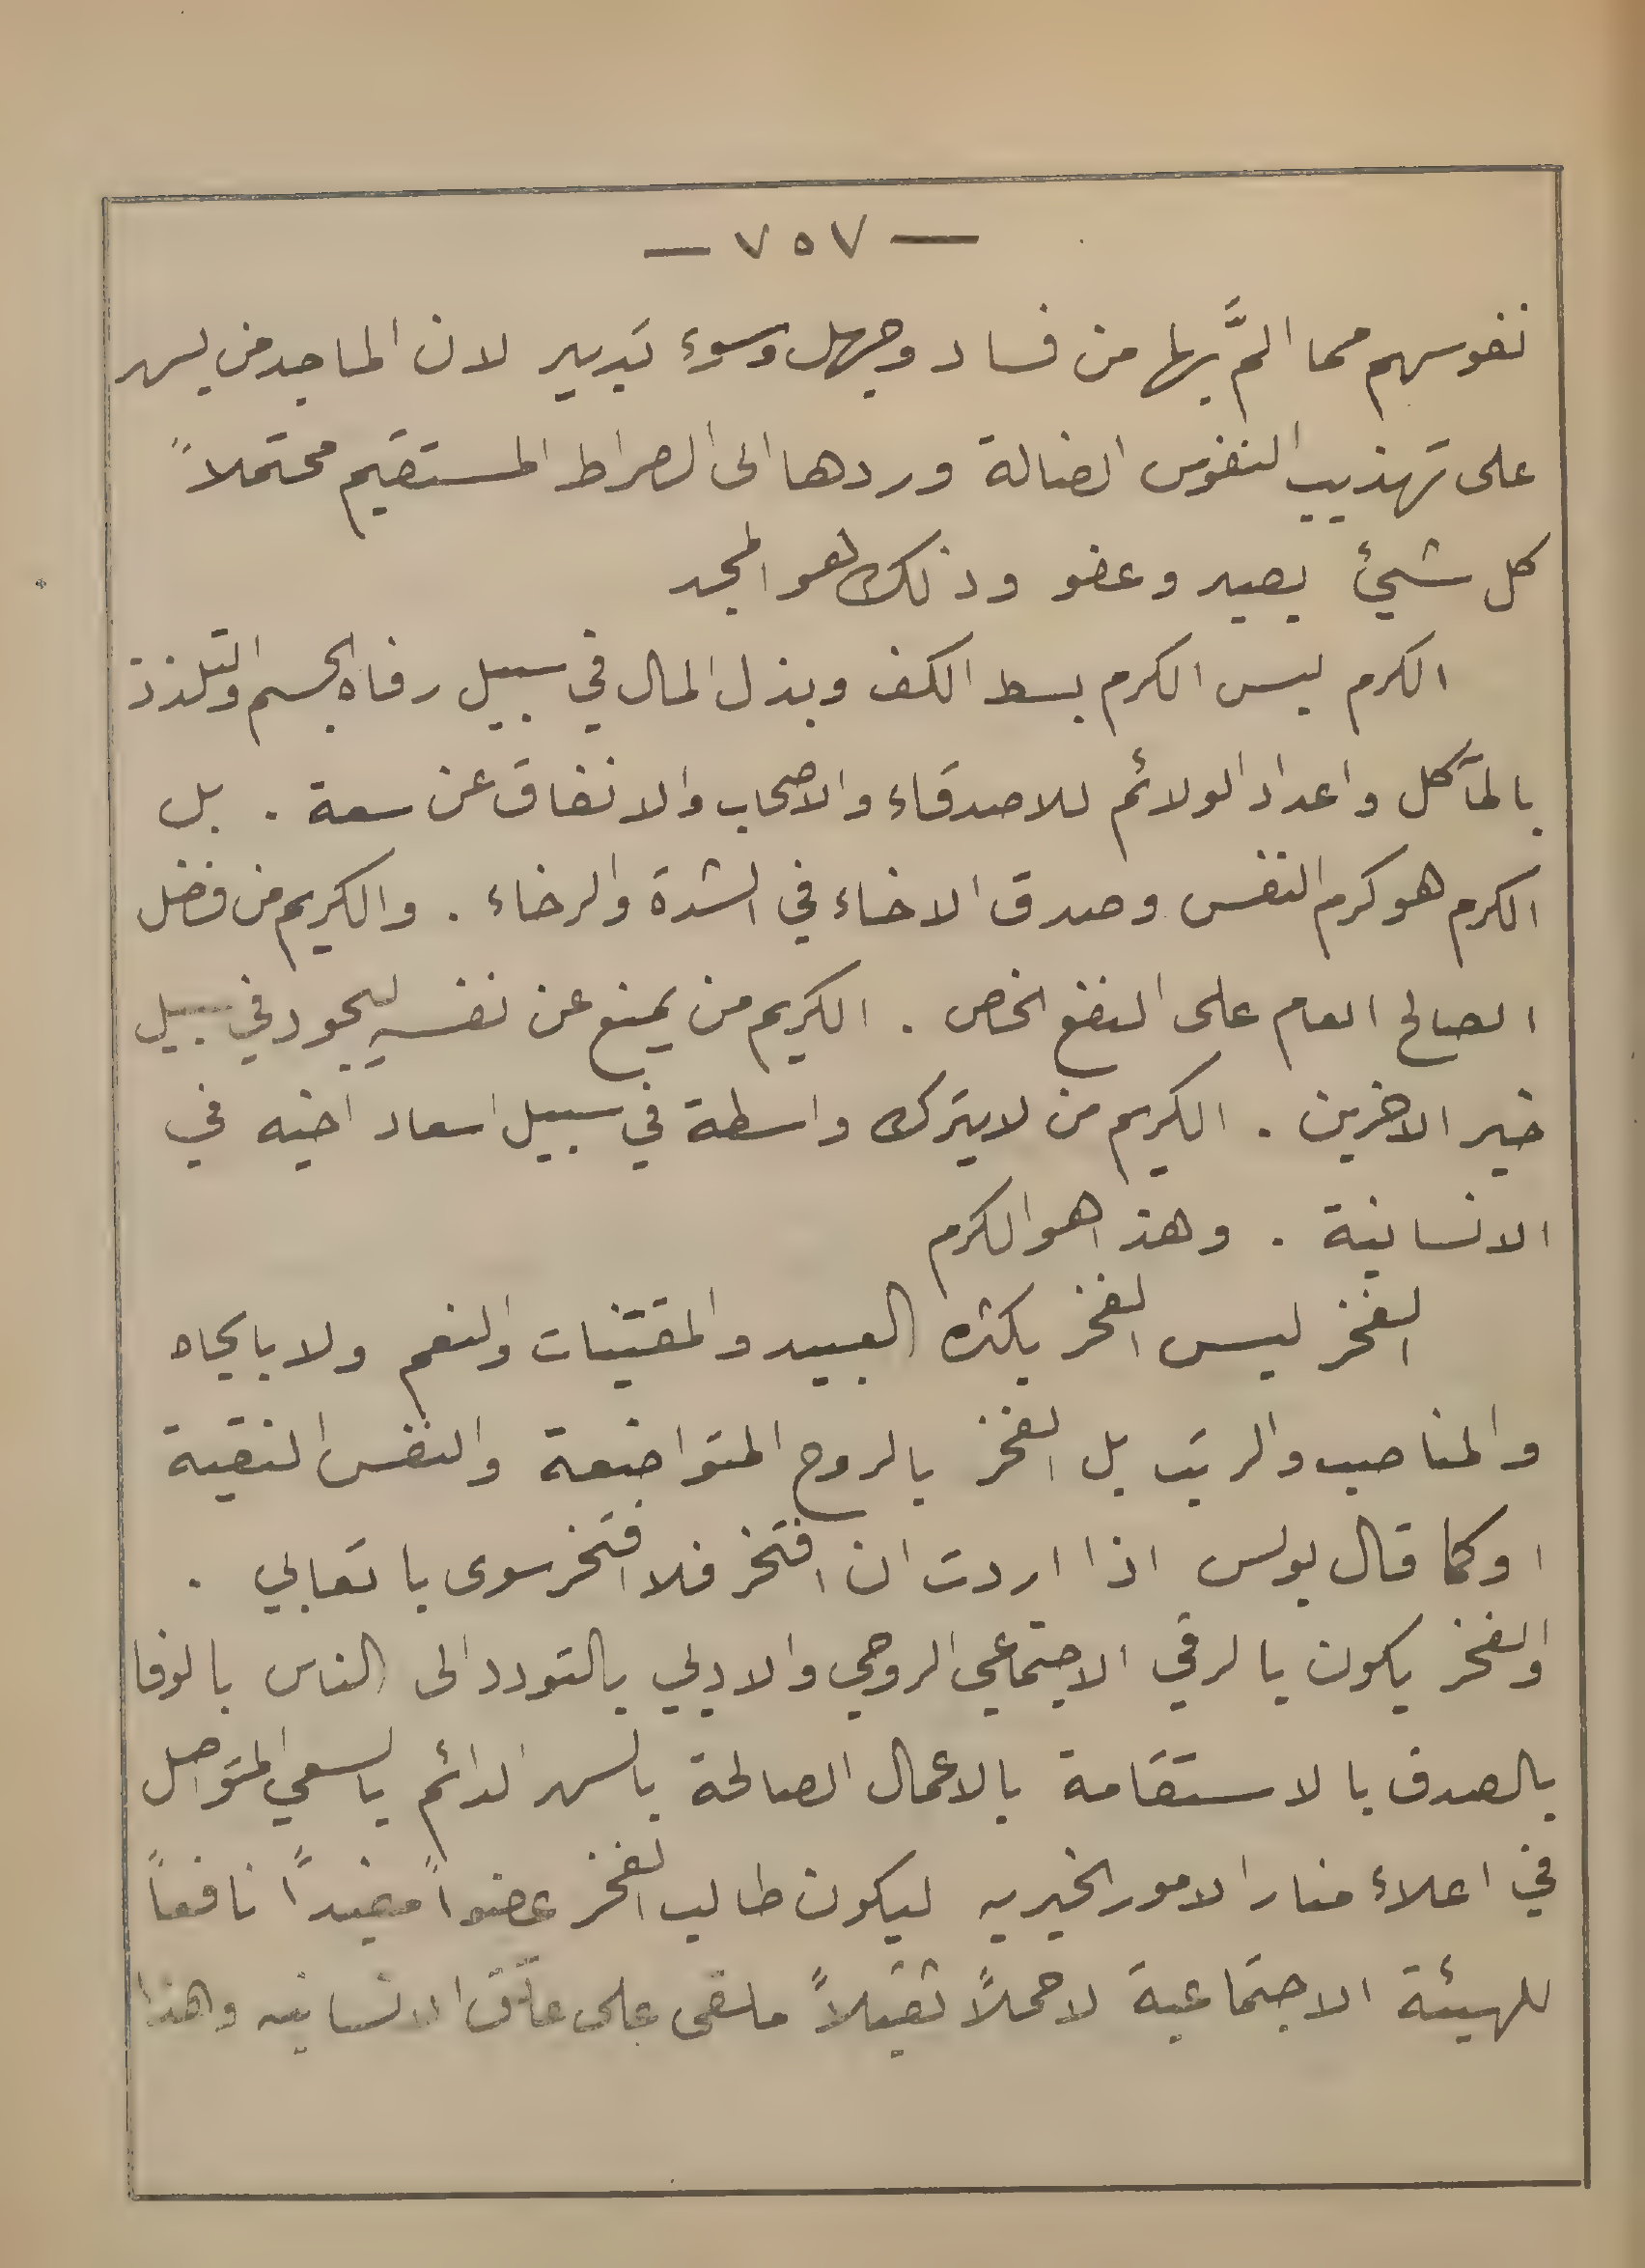 — ٧٥٧ —
نفوسهم مما المَّ بها من فساد وجهل وسوء تدبير لان الماجد من يسهر
على تهذيب النفوس الضالة وردها الى الصراط المستقيم محتملاً
كل شيئ بصبر وعفو وذلك لهو المجد
الكرم ليس الكرم بسط الكف وبذل المال في سبيل رفاه الجسم والتلذذ
بالمآكل واعداد الولائم للاصدقاء والاصحاب والانفاق عن سعة . بل
الكرم هو كرم النفس وصدق الاخاء في الشدة والرخاء . والكريم من فضل
الصالح العام على النفع الخاص . الكريم من يمنع عن نفسه ليجود في سبيل
خير الاخرين . الكريم من لا يترك واسطة في سبيل اسعاد اخيه في
الانسانية . وهذا هو الكرم
الفخر ليس الفخر بكثره العبيد والمقتنيات والنعم ولا بالجاه
والمناصب والرتب بل الفخر بالروح المتواضعة والنفس النقية
او كما قال بولس اذا اردت ان افتخر فلا افتخر سوى باتعابي .
والفخر يكون بالرقي الاجتماعي الروحي والادبي بالتودد الى الناس بالوفا
بالصدق بالاستقامة بالاعمال الصالحة بالسهر الدائم بالسعي المتواصل
في اعلاء منار الامور الخيريه ليكون طالب الفخر عضواً مفيداً نافعاً
للهيئة الاجتماعية لا حملاً ثقيلاً ملقى على عاتق الانسانيه وهذا